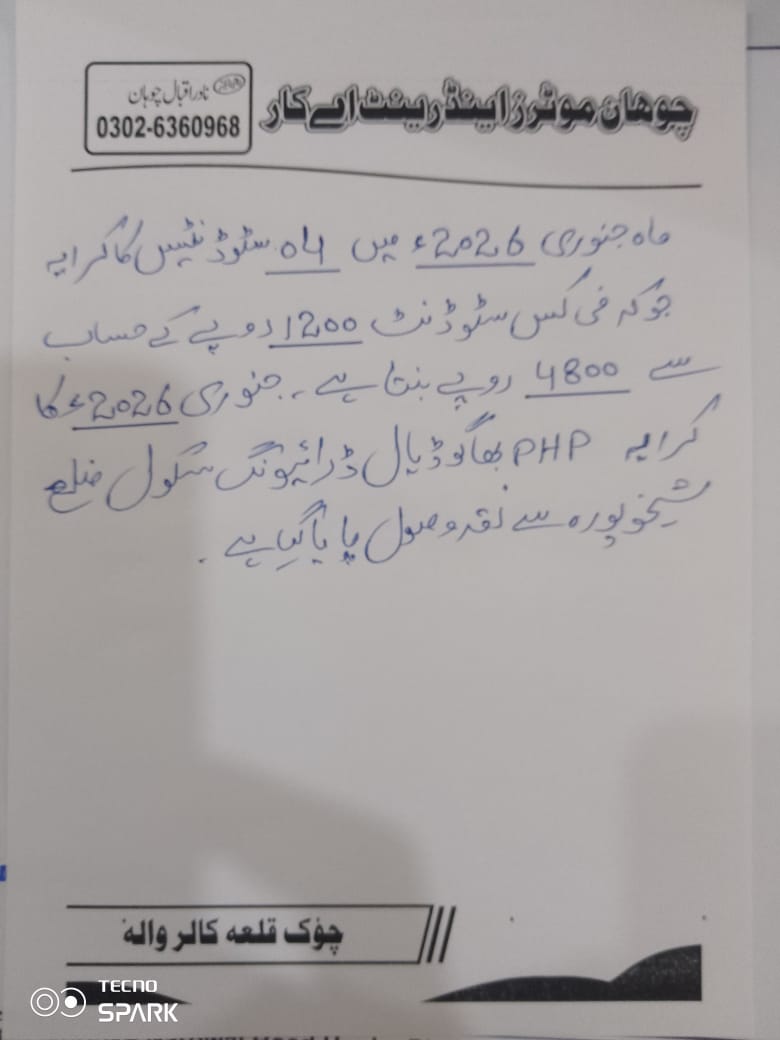 چوھان موٹرز اینڈ رینٹ اے کار
نادر اقبال چوہان
0302-6360968
ماہ جنوری 2026ء میں 04 سٹوڈنٹس کا کرایہ
جو کہ فی کس سٹوڈنٹ 1200 روپے کے حساب
سے 4800 روپے بنتا ہے۔ جنوری 2026ء کا
کرایہ PHP بھاگوڈیال ڈرائیونگ سکول ضلع
شیخوپورہ سے نقد وصول پایا گیا ہے۔
چوک قلعہ کالر والہ
TECNO
SPARK